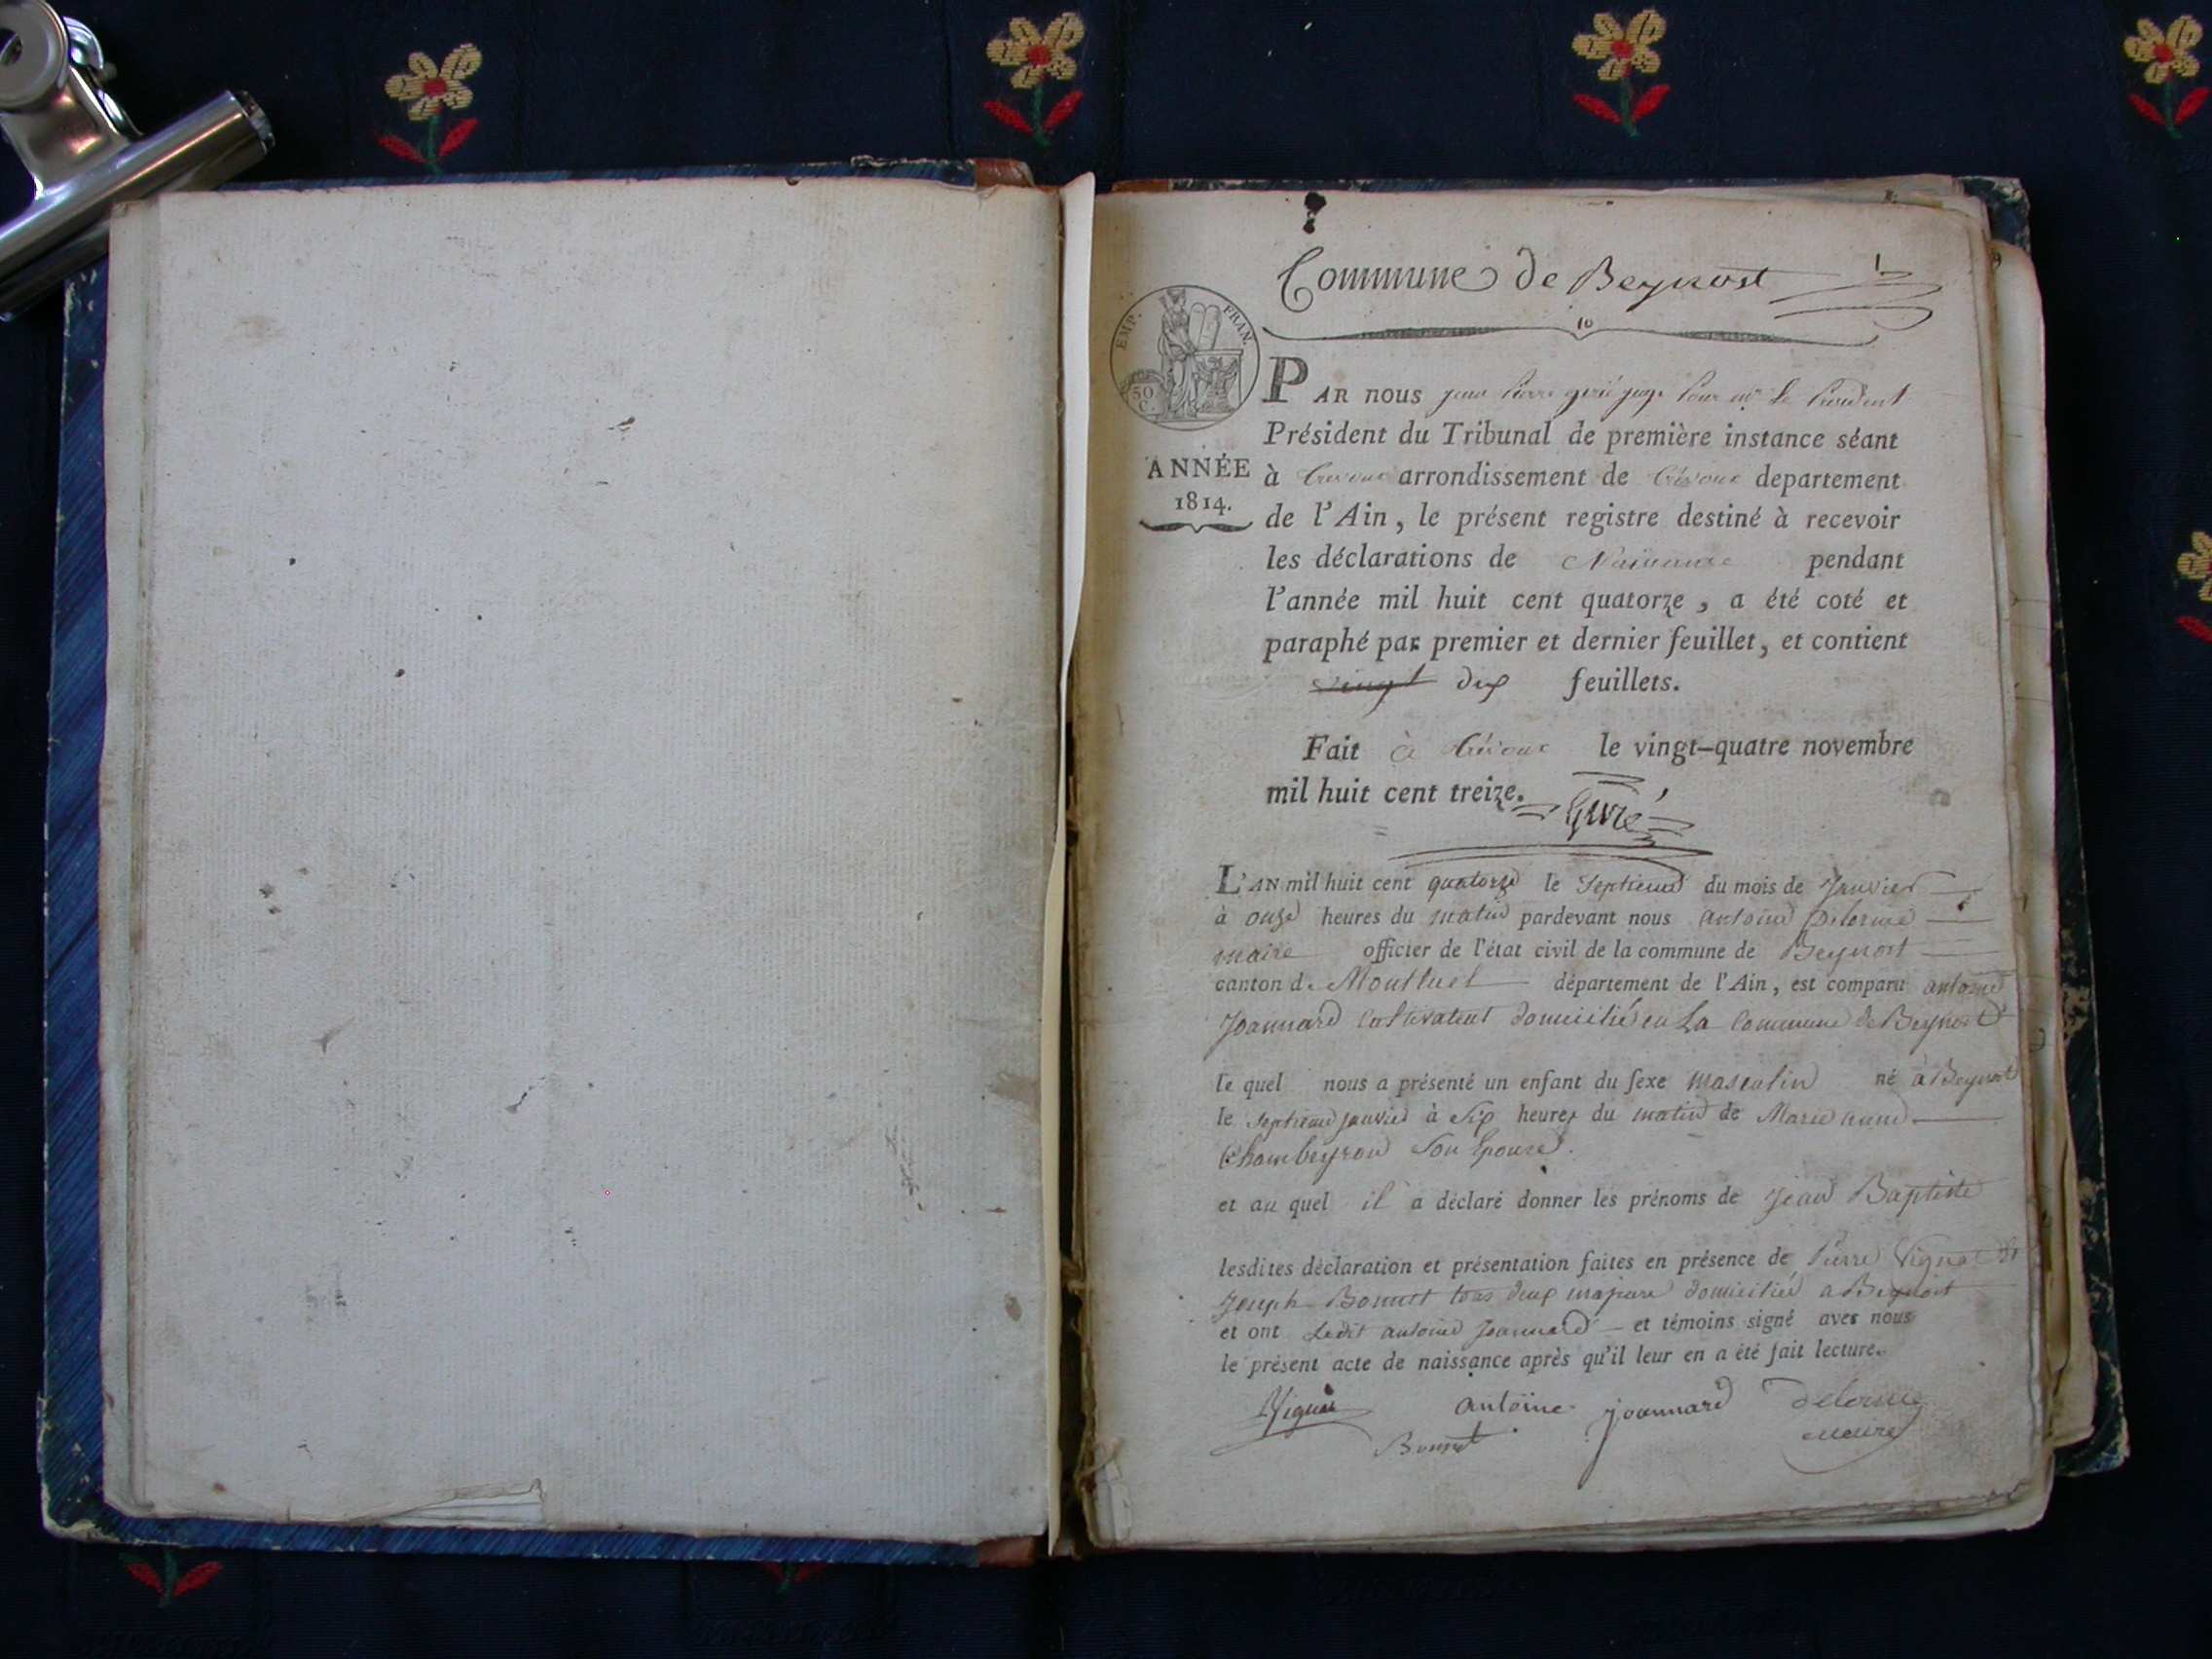 Commune de Beynost
1
10
EMP. FRAN.
50 C.
PAR nous jean pierre giré juge pour mr le President
Président du Tribunal de première instance séant
ANNÉE
1814.
à Trevoux arrondissement de Trévoux departement
de l'Ain, le présent registre destiné à recevoir
les déclarations de Naissance pendant
l'année mil huit cent quatorze, a été coté et
paraphé par premier et dernier feuillet, et contient
vingt dix feuillets.
Fait à Trévoux le vingt-quatre novembre
mil huit cent treize.
L'AN mil huit cent quatorze le septieme du mois de Janvier
à onze heures du matin pardevant nous antoine Delorme
maire officier de l'état civil de la commune de Beynost
canton de Montluel département de l'Ain, est comparu antoine
Joannard Cultivateur domicilié en La Commune de Beynost
le quel nous a présenté un enfant du sexe masculin né à Beynost
le septieme janvier à Six heures du matin de Marie
Chambeyron Son Epouse.
et au quel il a déclaré donner les prénoms de Jean Baptiste
lesdites déclaration et présentation faites en présence de Pierre Vignat et
Joseph Bonnet tous deux majeurs domiciliés a Beynost
et ont Ledit antoine Joannard et témoins signé avec nous
le présent acte de naissance après qu'il leur en a été fait lecture.
Vignat antoine joannard delorme
Bonnet maire